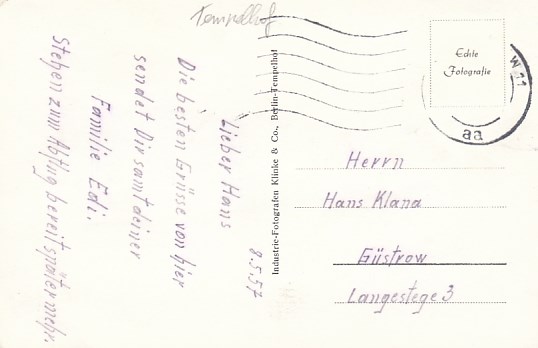 Tempelhof
8.5.57
Lieber Hans
Die besten Grüsse von hier
sendet Dir samt deiner
Familie Edi.
Stehen zum Abflug bereit später mehr.
Industrie-Fotografen Klinke & Co., Berlin-Tempelhof
Echte
Fotografie
W 11
aa
Herrn
Hans Klana
Güstrow
Langestege 3